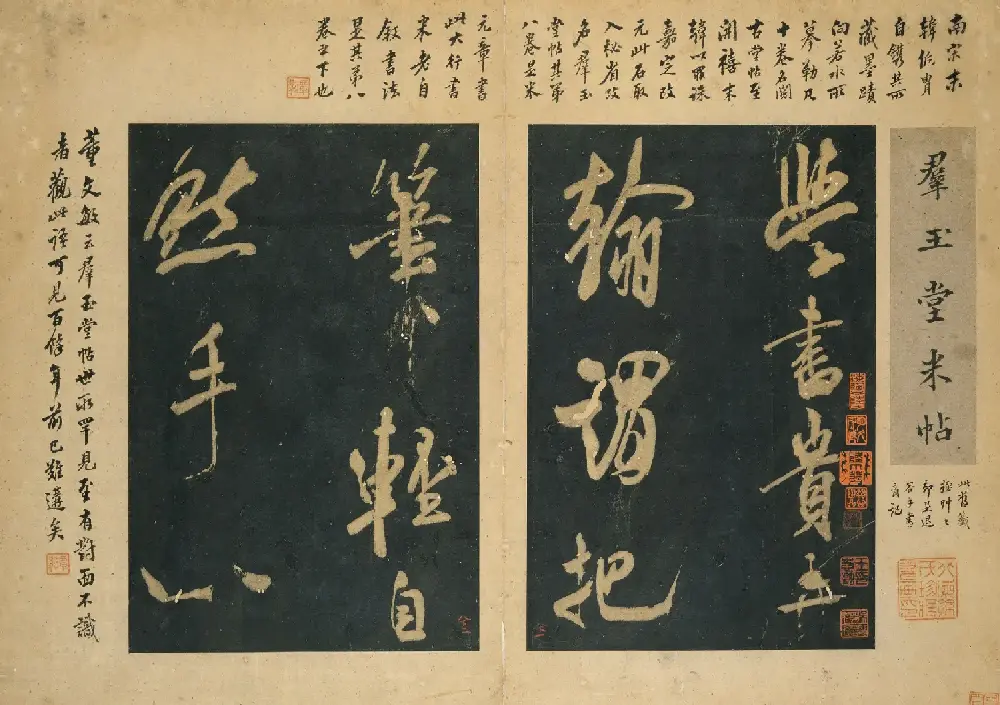 南宋末
韓侂冑
自鐫其所
藏墨蹟
向若水所
摹勒凡
十卷名閱
古堂帖至
開禧末
韓以罪誅
嘉定改
元此石取
入秘省改
名羣玉
堂帖其第
八卷是米
元章書
此大行書
米老自
敘書法
是其第八
卷之下也
羣玉堂米帖
此舊籤
谷手書
學書貴弄
翰謂把
筆輕自
然手心
董文敏云羣玉堂帖世所罕見至有對面不識
者觀此語可見百餘年前已難遘矣